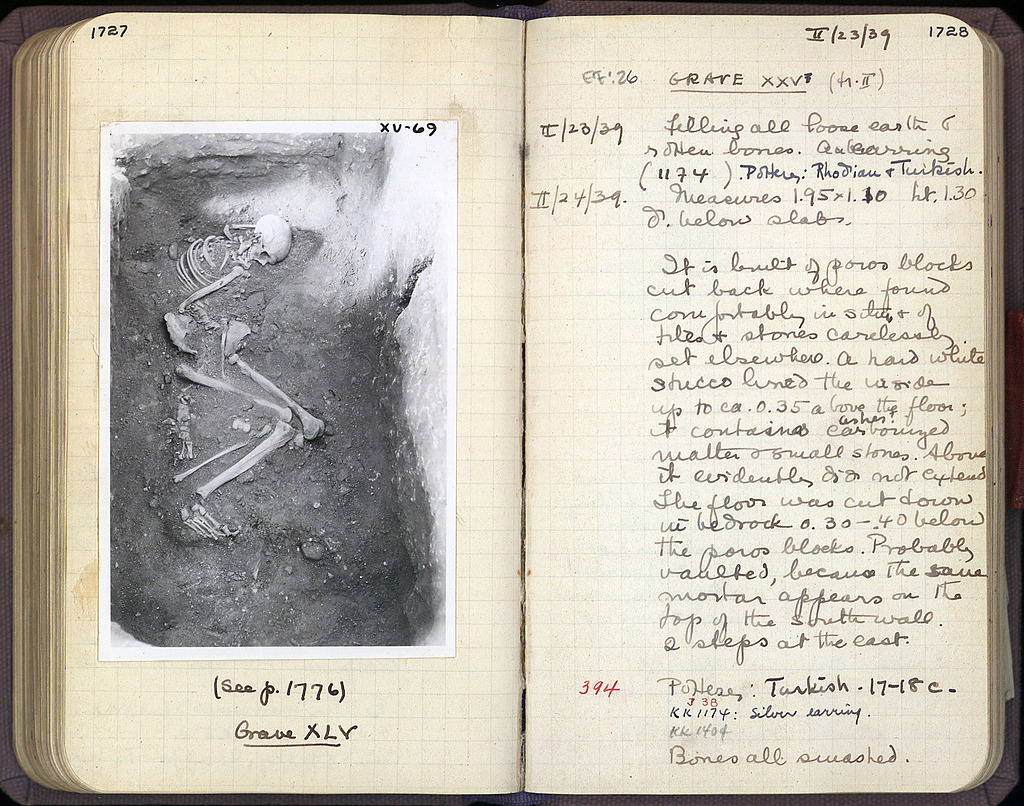 1727
XV-69
(See p. 1776)
Grave XLV
II/23/39 1728
EF:26 GRAVE XXV (H.II)
II/23/39 Filling all loose earth &
rotten bones. An earring
(1174). Pottery: Rhodian & Turkish.
II/24/39. Measures 1.95 x 1.10 ht. 1.30
below slabs.
It is built of poros blocks
cut back where found
comfortably in situ & of
tiles & stones carelessly
set elsewhere. A hard white
stucco lined the inside
up to ca. 0.35 above the floor;
ashes?
it contains carbonized
matter & small stones. Above
it evidently did not extend
The floor was cut down
in bedrock 0.30-.40 below
the poros blocks. Probably
vaulted, because the same
mortar appears on the
top of the south wall.
2 steps at the east.
394 Pottery: Turkish. 17-18 c.
J 38
KK 1174: Silver earring.
KK 1404
Bones all smashed.